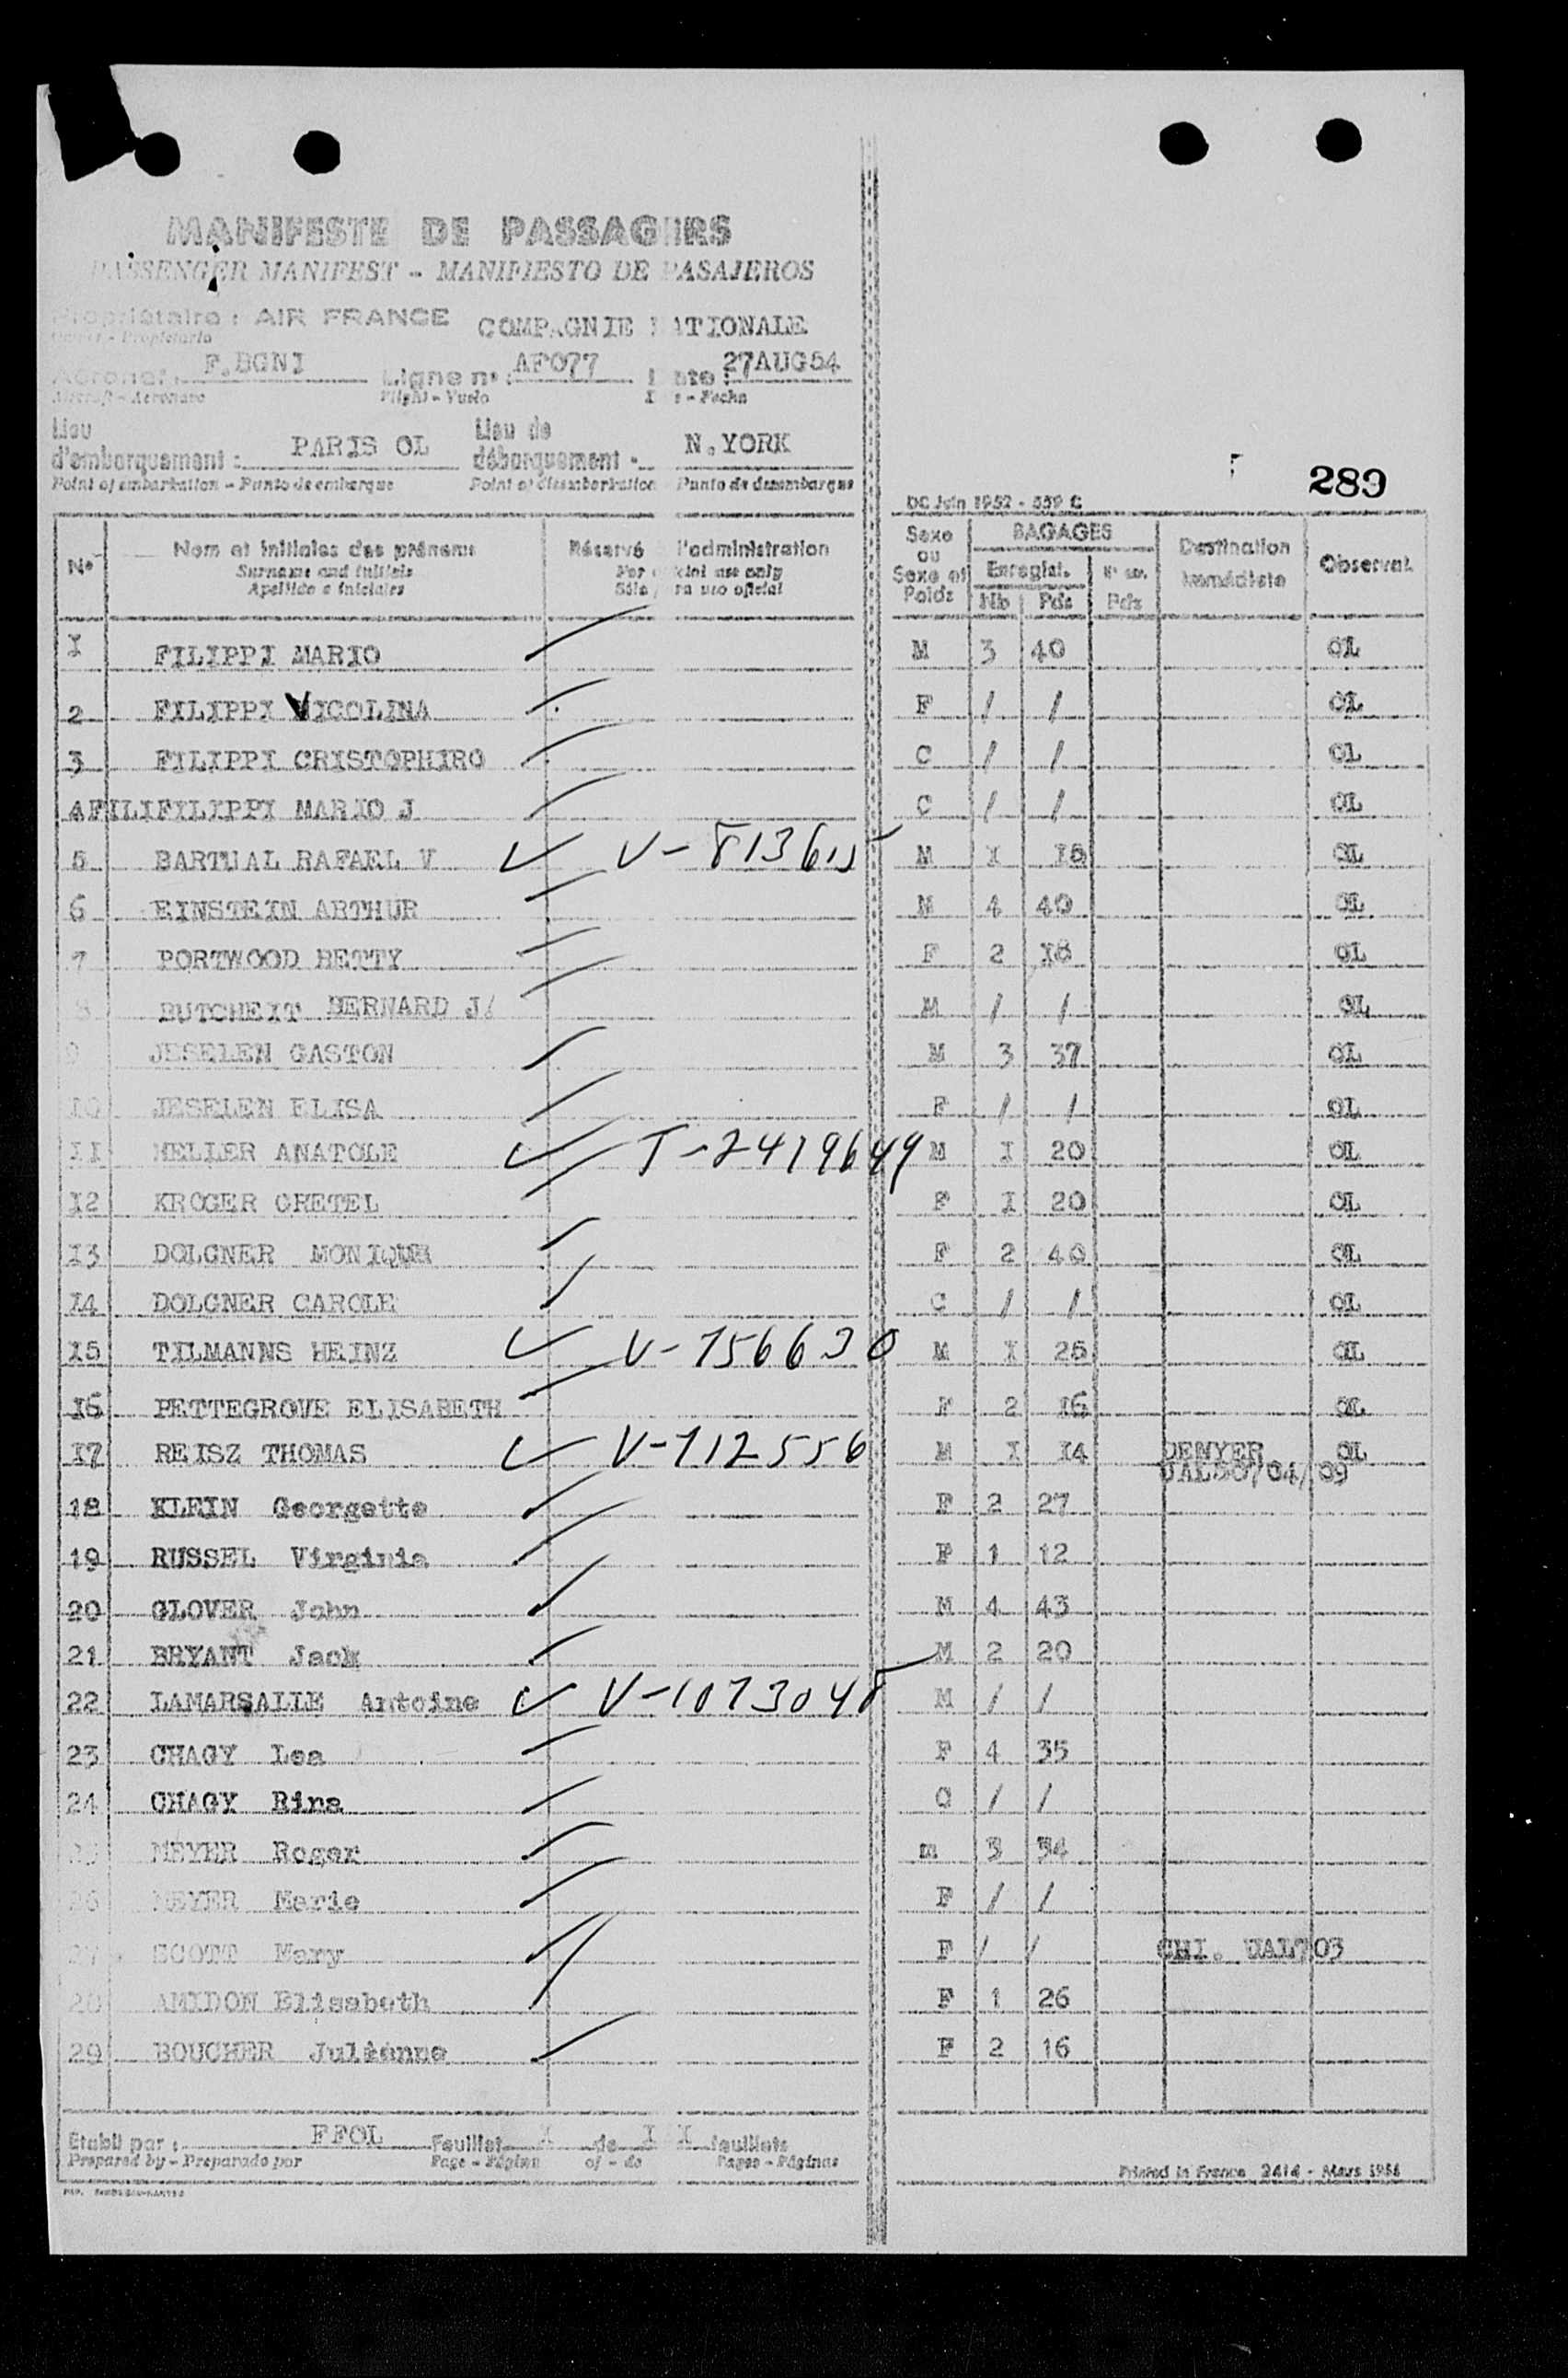 MANIFESTE DE PASSAGERS
PASSENGER MANIFEST - MANIFIESTO DE PASAJEROS
Propriétaire : AIR FRANCE COMPAGNIE NATIONALE
Owner - Propietario
Aéronef : F.BGNI Ligne n° : AF077 Date : 27AUG54
Aircraft - Aeronave Flight - Vuelo - Fecha
Lieu d'embarquement : PARIS OL Lieu de débarquement - N.YORK
Point of embarkation - Punto de embarque Point of disembarkation Punto de desembarque
289
DC Juin 1952 - 559 C
N° Nom et initiales des prénoms Réservé l'administration Sexe ou Sexe et Poids BAGAGES Destination Immédiate Observat.
Surname and initials For official use only Enregist.
Apellido e iniciales Sólo para uso oficial Nb Pds Pds
1 FILIPPI MARIO M 3 40 OL
2 FILIPPI VICOLINA F / / OL
3 FILIPPI CRISTOPHIRO C / / OL
4FILIFILIPPI MARIO J C / / OL
5 BARTUAL RAFAEL V V-813615 M I OL
6 EINSTEIN ARTHUR M 4 40 OL
7 PORTWOOD BETTY F 2 I8 OL
8 BUTCHEIT BERNARD J/ M / / OL
9 JESELEN GASTON M 3 37 OL
10 JESELEN ELISA F / / OL
II ANATOLE T-2419649 M I 20 OL
I2 KROGER GRETEL F I 20 OL
I3 DOLGNER MONIQUE F 2 40 OL
I4 DOLGNER CAROLE C / / OL
I5 TILMANNS HEINZ V-756630 M I OL
I6 PETTEGROVE ELISABETH F 2 I6 OL
I7 REISZ THOMAS V-712556 M I I4 DENVER OL
/04/09
18 KLEIN Georgette F 2 27
19 RUSSEL Virginia F 1 12
20 GLOVER John M 4 43
21 BRYANT Jack M 2 20
22 LAMARSALLE Antoine V-1073048 M / /
23 CHAGY Lea F 4 35
24 CHAGY Rina C / /
25 MEYER Roger m 3 34
26 MEYER Marie F / /
27 SCOTT Mary F / / CHI. UAL703
28 AMIDON Elisabeth F 1 26
29 BOUCHER Julienne F 2 16
Etabli par : FFOL Feuillet I de I I feuillets
Prepared by - Preparado por Page - Página of - de Pages - Páginas
Printed in France 2414 - Mars